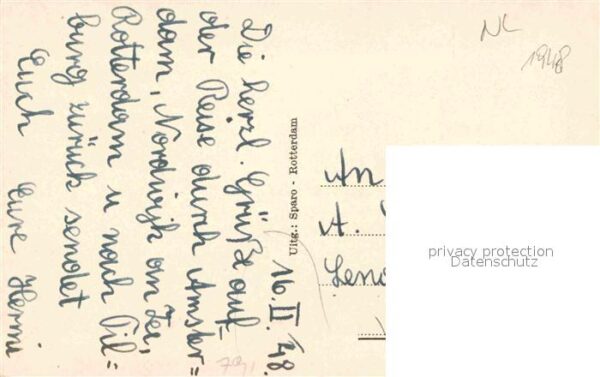 Die herzl. Grüße auf
der Reise durch Amster=
dam, Nordwijk an Zee,
Rotterdam u nach Til=
burg zurück sendet
Euch
Eure Hermi
16.II.48.
Uitg.: Sparo - Rotterdam
An
A.
NL
1948
privacy protection
Datenschutz